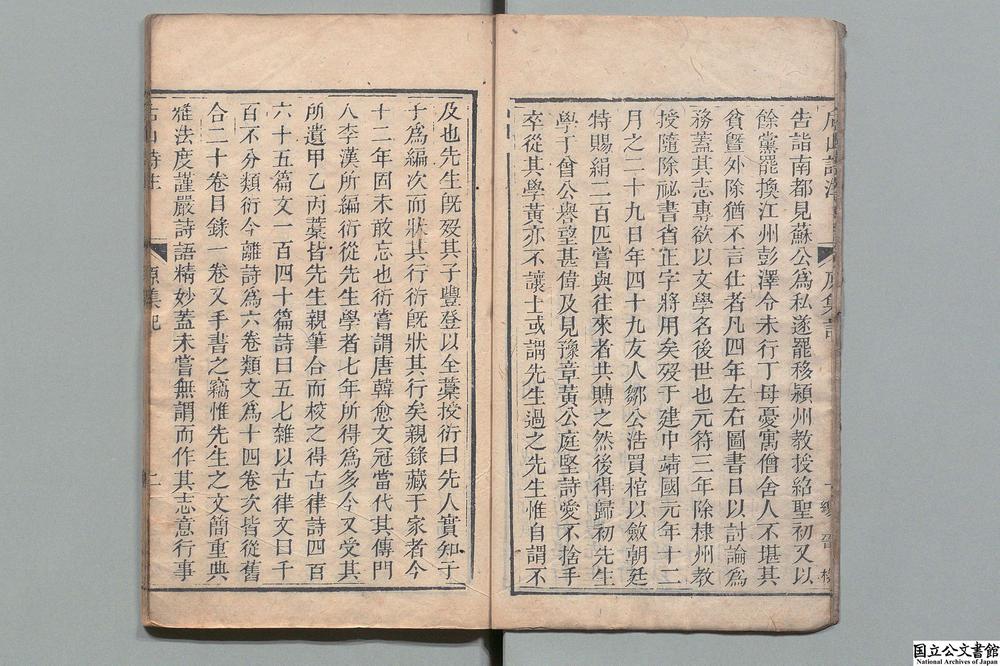 告詣南都見蘇公爲私遂罷移潁州教授紹聖初又以
餘黨罷換江州彭澤令未行丁母憂寓僧舍人不堪其
貧曁外除猶不言仕者凡四年左右圖書日以討論爲
務蓋其志專欲以文學名後世也元符三年除棣州教
授隨除祕書省正字將用矣歿于建中靖國元年十二
月之二十九日年四十九友人鄒公浩買棺以斂朝廷
特賜絹二百匹嘗與往來者共賻之然後得歸初先生
學于曾公譽望甚偉及見豫章黃公庭堅詩愛不捨手
卒從其學黃亦不讓士或謂先生過之先生惟自謂不
及也先生旣歿其子豐登以全藁授衍曰先人實知于
子爲編次而狀其行衍旣狀其行矣親錄藏于家者今
十二年固未敢忘也衍嘗謂唐韓愈文冠當代其傳門
人李漢所編衍從先生學者七年所得爲多今又受其
所遺甲乙丙藁皆先生親筆合而校之得古律詩四百
六十五篇文一百四十篇詩曰五七雜以古律文曰千
百不分類衍今離詩爲六卷類文爲十四卷次皆從舊
合二十卷目錄一卷又手書之竊惟先生之文簡重典
雅法度謹嚴詩語精妙蓋未嘗無謂而作其志意行事
后山詩注
原集記
二
国立公文書館
National Archives of Japan